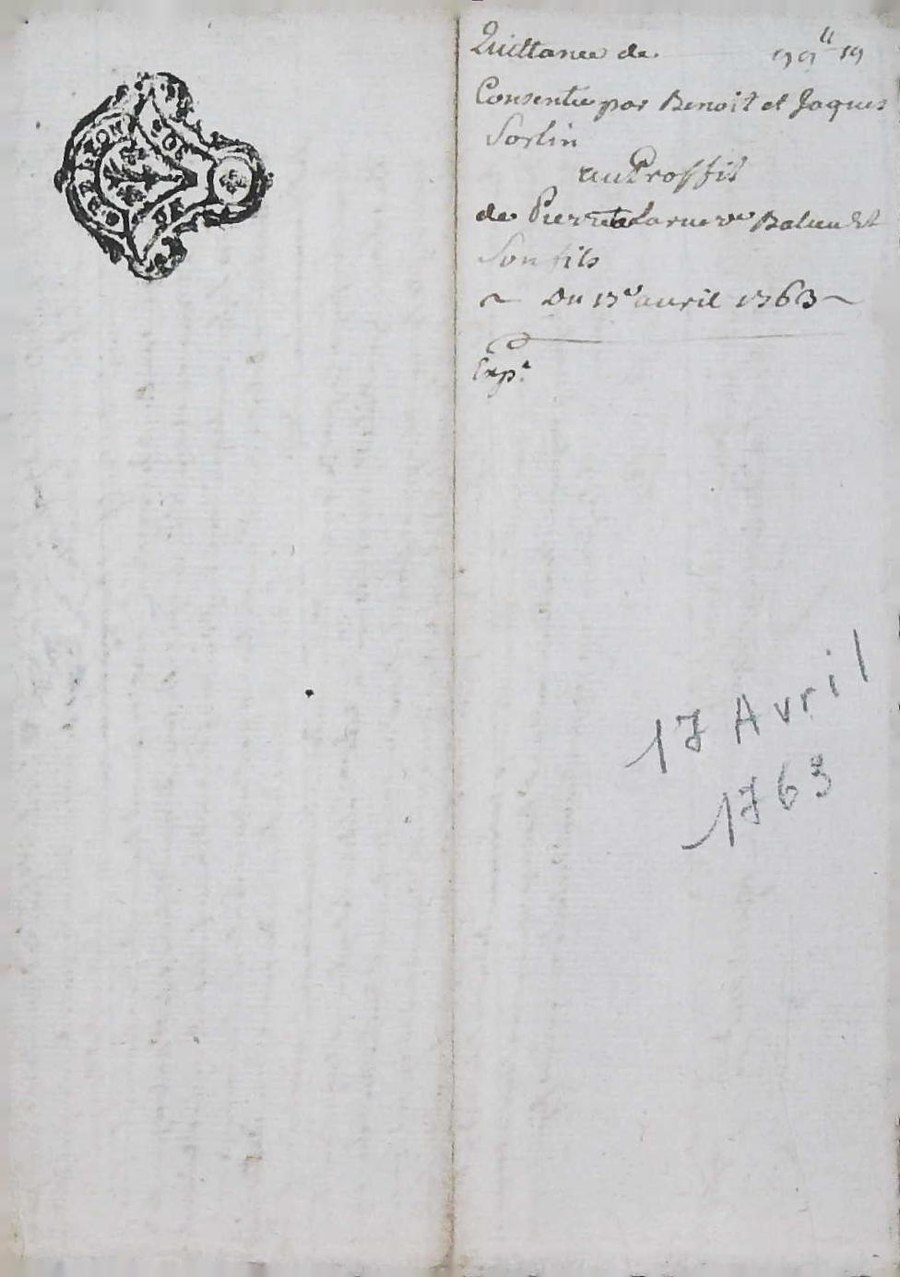 Quittance de 19
Consentie par Benoit et Jaques
Sorlin
au Proffit
de Pierrette Larue v.e Balieu Et
Son fils
~ Du 17.e avril 1763 ~
Exp.e
17 Avril
1763